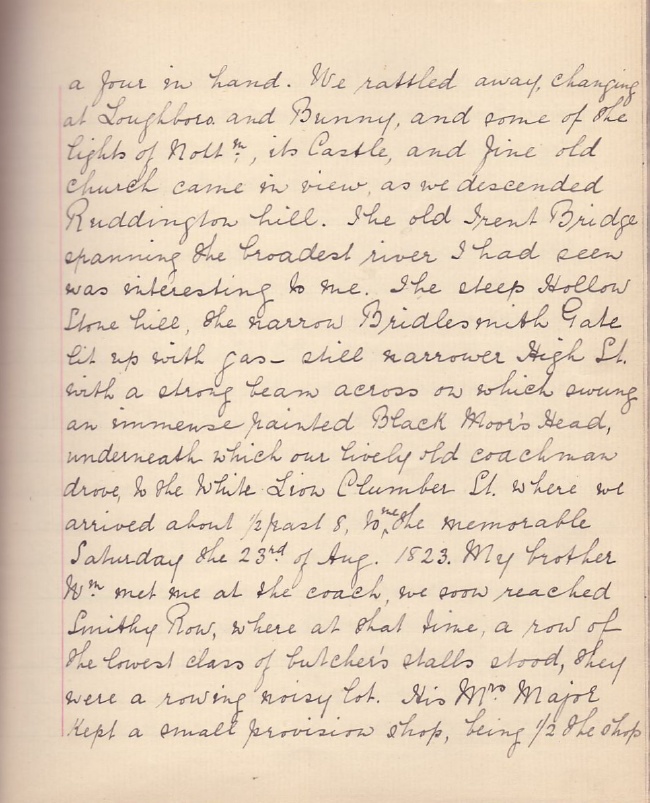 a four in hand. We rattled away, changing
at Loughboro and Bunny, and some of the
lights of Nottm, its Castle, and fine old
church came in view, as we descended
Ruddington hill. The old Trent Bridge
spanning the broadest river I had seen
was interesting to me. The steep Hollow
Stone hill, the narrow Bridlesmith Gate
lit up with gas – still narrower High St.
with a strong beam across on which swung
an immense painted Black Moor's Head,
underneath which our lively old coachman
drove, to the White Lion Clumber St. where we
arrived about 1/2 past 8, to me, the memorable
Saturday the 23rd of Aug. 1823. My brother
Wm met me at the coach, we soon reached
Smithy Row, where at that time, a row of
the lowest class of butcher's stalls stood, they
were a rowing noisy lot. His Mrs Major
kept a small provision shop, being 1/2 the shop